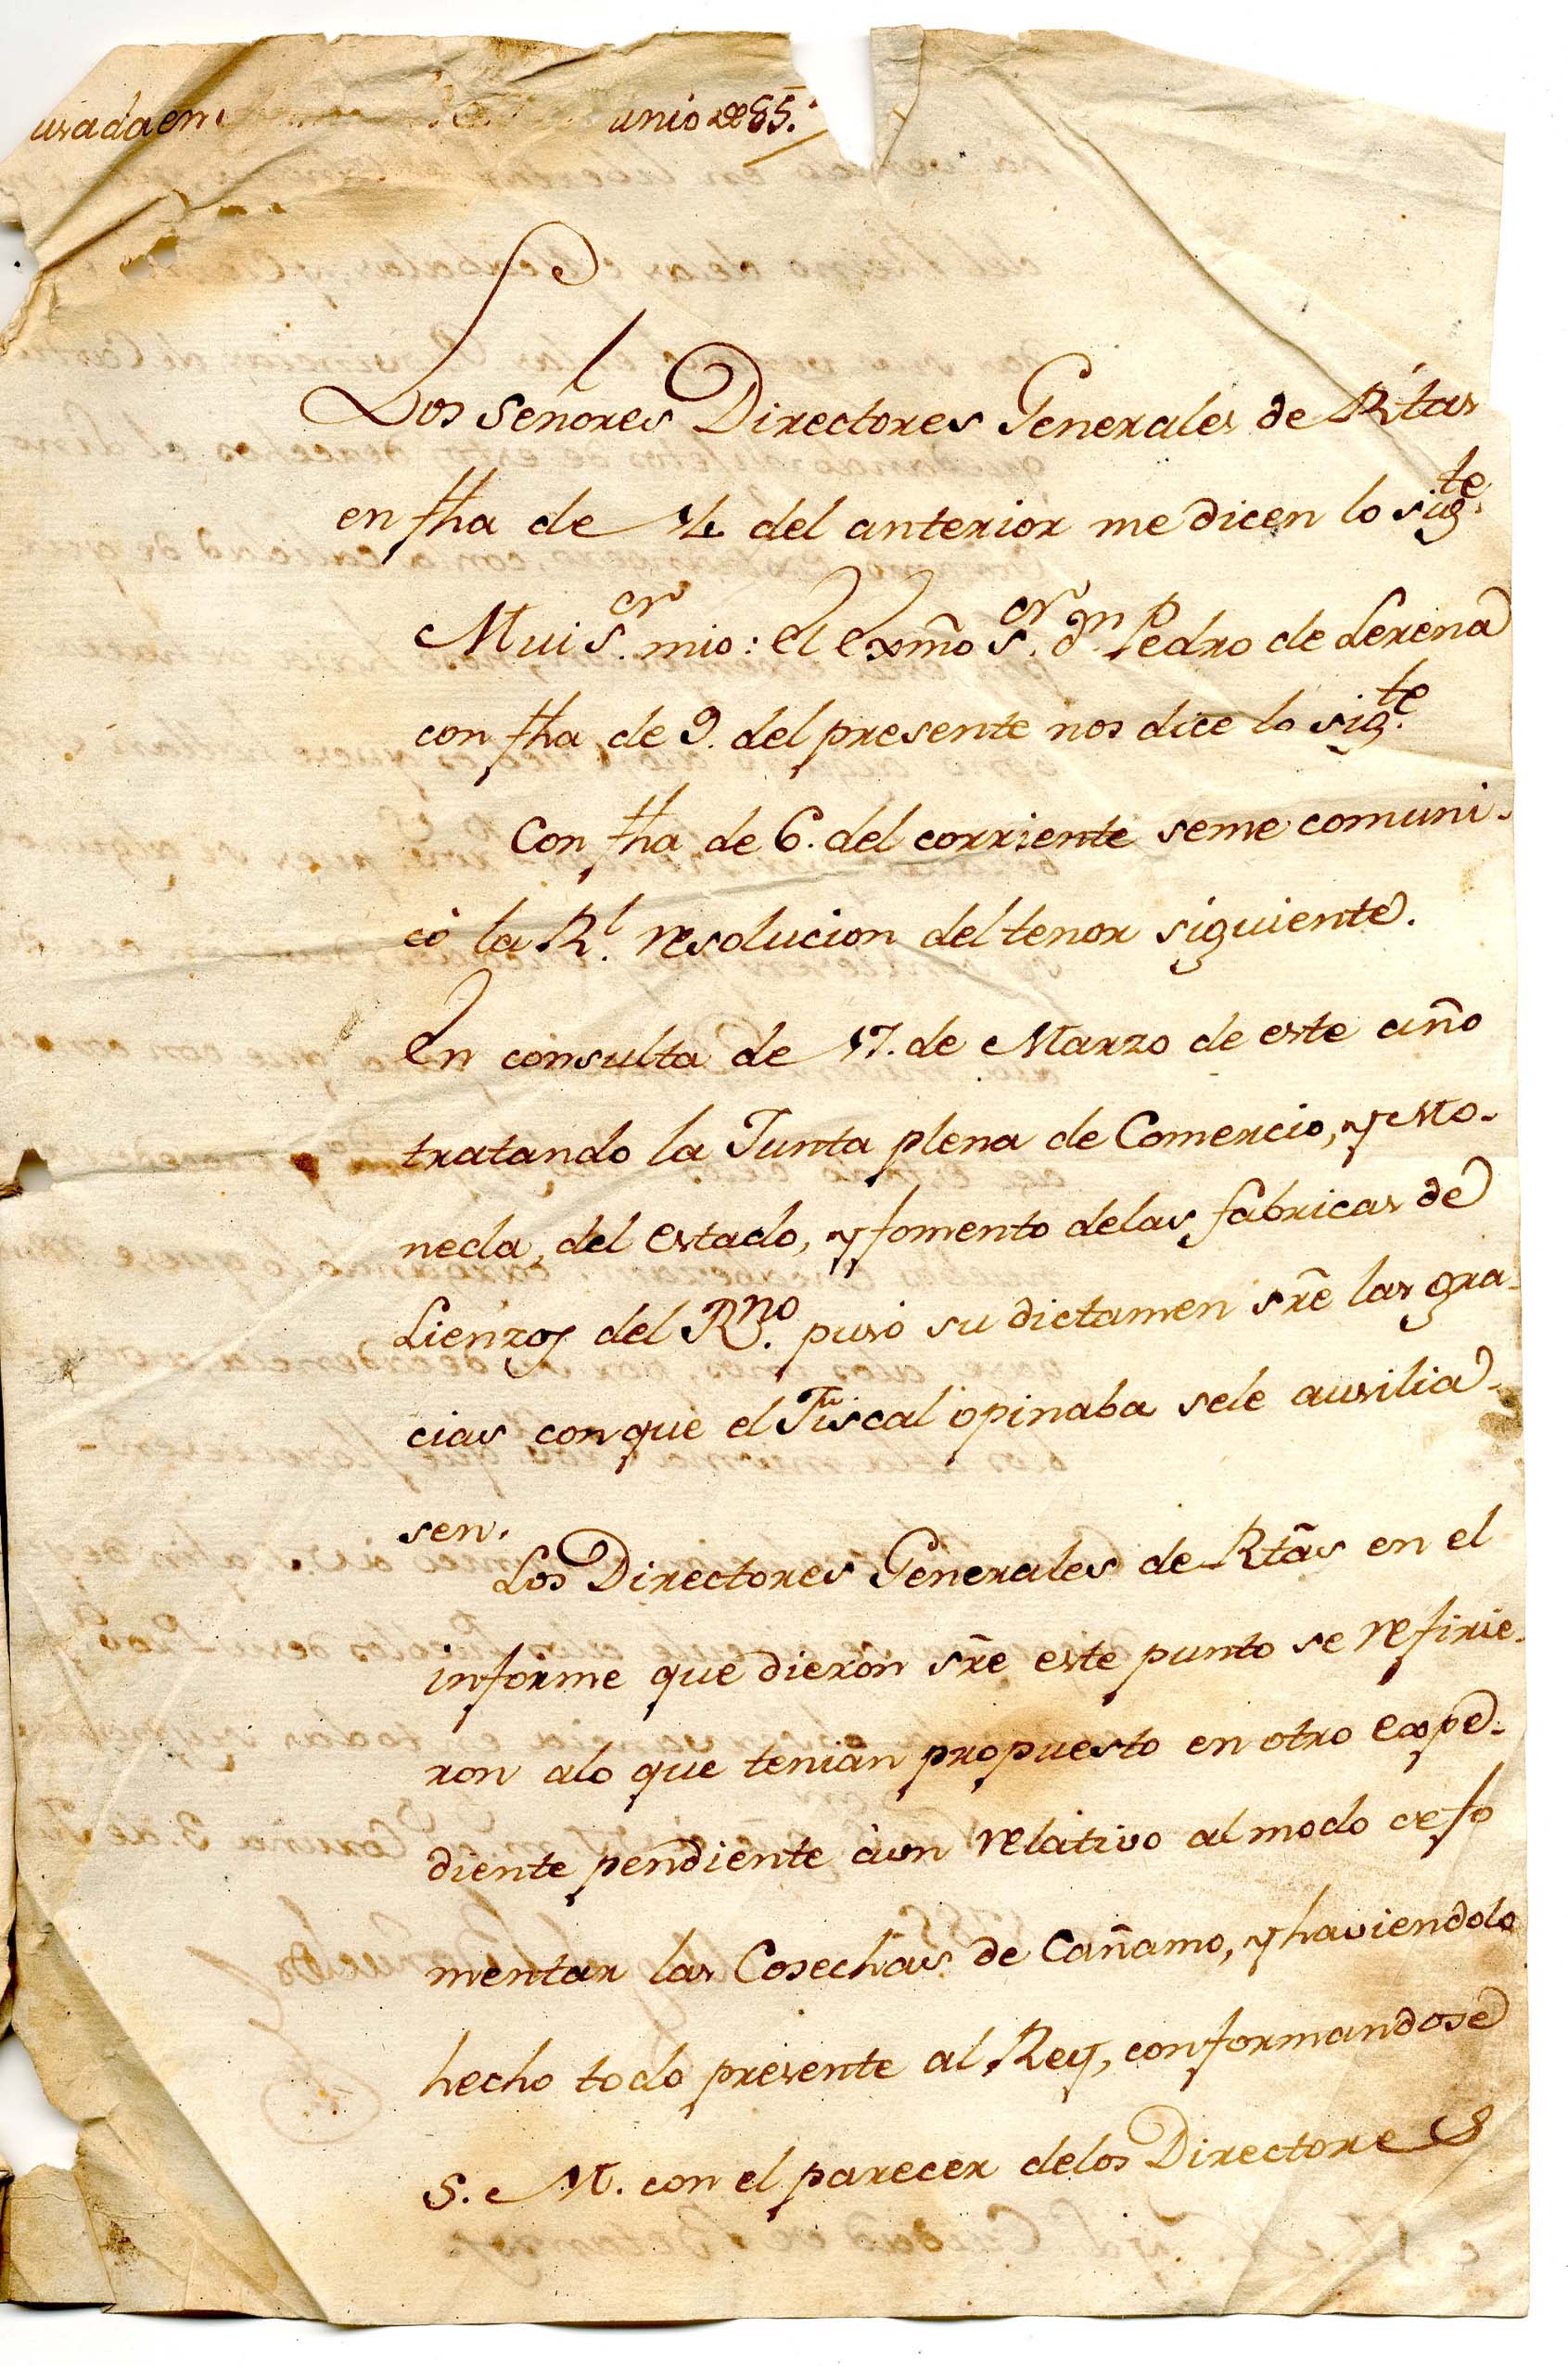 unio de 85.
Los Señores Directores Generales de Rtas
en fha de 14 del anterior me dicen lo sigte.
Mui Sor. mio: el Exmo Sor. dn. Pedro de Lerena
con fha de 9. del presente nos dice lo sigte.
Con fha de 6. del corriente seme comuni-
có la Rl. resolucion del tenor siguiente.
En consulta de 17. de Marzo de este año
tratando la Junta plena de Comercio, y Mo-
neda, del estado, y fomento delas fabricas de
Lienzos del Rno. pusó su dictamen sre las gra-
cias conque el Fiscal opinaba sele auxilia-
sen.
Los Directores Generales de Rtas en el
informe que dieron sre este punto se refirie-
ron alo que tenian propuesto en otro expe-
diente pendiente àun relativo al modo defo
mentar las Cosechas de Cañamo, y haviendolo
hecho todo presente al Rey, conformandose
S. M. con el parecer delos Directores